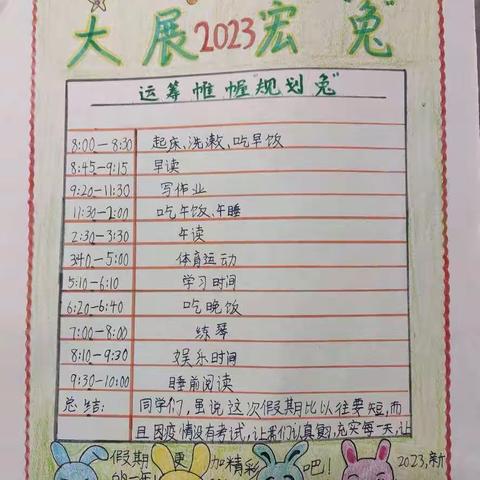 大展2023宏“兔”
运筹帷幄“规划兔”
8:00—8:30 起床、洗漱、吃早饭
8:45—9:15 早读
9:20—11:30 写作业
11:30—2:00 吃午饭、午睡
2:30—3:30 午读
3:40—5:00 体育运动
5:10—6:10 学习时间
6:20—6:40 吃晚饭
7:00—8:00 练琴
8:10—9:30 娱乐时间
9:30—10:00 睡前阅读
总结: 同学们,虽说这次假期比以往要短,而
且因疫情没有考试,让我们认真复习,充实每一天,让
假期更加精彩吧!2023,新
的一年